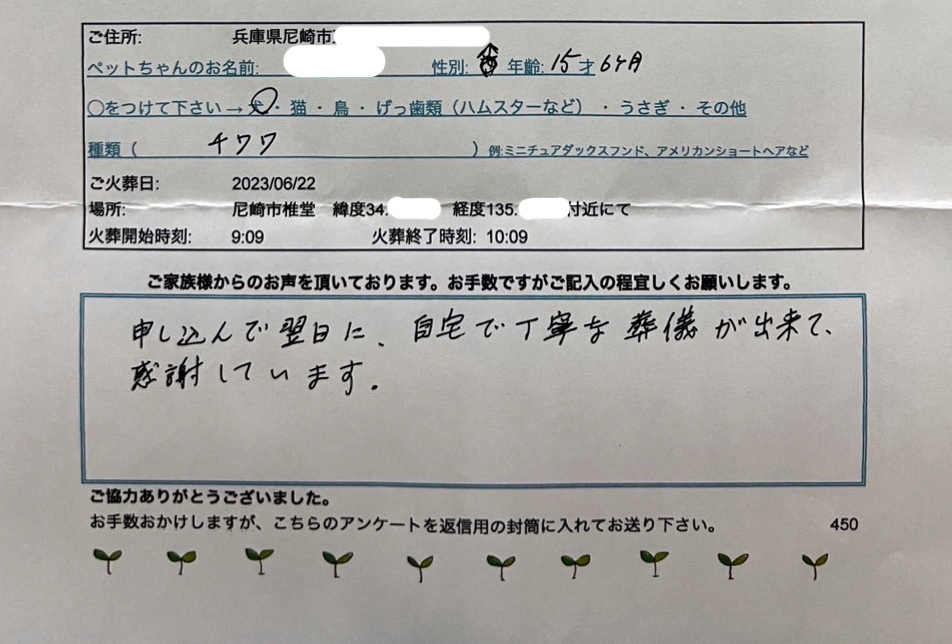 ご住所: 兵庫県尼崎市
ペットちゃんのお名前: 性別: ♂ 年齢: 15才6ヶ月
○をつけて下さい→犬・猫・鳥・げっ歯類（ハムスターなど）・うさぎ・その他
種類（ チワワ ）例:ミニチュアダックスフンド、アメリカンショートヘアなど
ご火葬日: 2023/06/22
場所: 尼崎市椎堂 緯度34. 経度135. 付近にて
火葬開始時刻: 9:09 火葬終了時刻: 10:09
ご家族様からのお声を頂いております。お手数ですがご記入の程宜しくお願いします。
申し込んで翌日に、自宅で丁寧な葬儀が出来て、
感謝しています。
ご協力ありがとうございました。
お手数おかけしますが、こちらのアンケートを返信用の封筒に入れてお送り下さい。 450